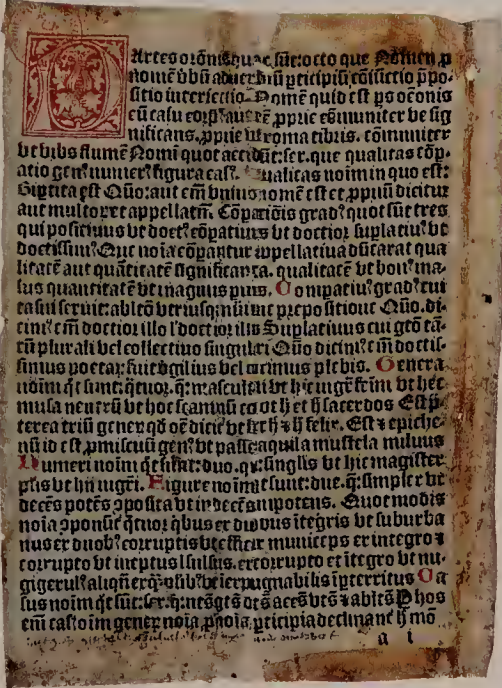 Partes orōnis quae sūt: octo que Nomen ꝓ
nomē v̄bū aduerbiū ꝑticipiū cōiūctio p̄po-
sitio interiectio. Nomē quid est ps oēonis
cū casu corpꝰ aut rē ꝓprie cōmuniter ve sig
nificans. ꝓprie vt roma tibris. cōmuniter
vt vrbs flumē Nomī quot accidūt: ser. que qualitas cōp-
atio genꝰ numerꝰ figura casꝰ. Qualitas noim in quo est:
Biptita est Quō: aut em̄ vniꝰ nomē est et ꝓpriū dicitur
aut multorꝝ et appellatiū. Cōpatiōis gradꝰ quot sūt tres
qui positiuus vt doctꝰ cōpatiuꝰ vt doctior suplatiuꝰ vt
doctissimꝰ Que noīa cōpantur appellatiua dūtaxat qua
litatē aut quātitatē significantia. qualitatē vt bonꝰ ma-
lus quantitatē vt magnus paruus. Compatiuꝰ gradꝰ cui
casui seruit: ablatō vtriusqꝫ nūi sine prepositione Quō. di-
cimꝰ em̄ doctior illo ł doctior illis Suplatiuus cui gtō tā-
tū plurali vel collectiuo singulari Quō dicimꝰ em̄ doctis-
simus poetarꝝ fuit v̄gilius vel ocissimus plebis. Genera
noim qt̄ sunt: q̄tuor. q̄: masculinū vt hic mgr̄ femi vt hec
musa neutrū vt hoc scamnū cōe vt h̄ et h̄ sacerdos Est p̄-
terea triū generꝝ qd̄ oē dicit̄ vt h̄ et h̄ ꝯ h̄ felix. Est ꝯ epiche-
nū id est ꝓmiscuū genꝰ vt passer aquila mustela miluus
Numeri noim qt̄ sunt: duo. q̄: singlis vt hic magister
plis vt hii mgr̄i. Figure noim qt̄ sunt: due. q̄: simplex vt
decēs potēs ꝯposita vt indecēs impotens. Quot modis
noīa ꝯponūt̄ q̄tuor qbus ex duobus itegris vt suburba
nus ex duobꝰ corruptis vt efficax municeps ex integro ꝯ
corrupto vt ineptus īsulsus. ex corrupto et itegro vt nu-
gigerulꝰ aliqn̄ ex ꝯplibꝰ vt iexpugnabilis īperterritus Ca
sus noim qt̄ sūt: sex. q̄: ntꝰ gtꝰ dtꝰ actꝰ vtꝰ ꝯ abltꝰ P hos
em̄ casꝰ oim generꝝ noīa ꝓnoīa ꝑticipia declinant̄ h̄ mō
a i